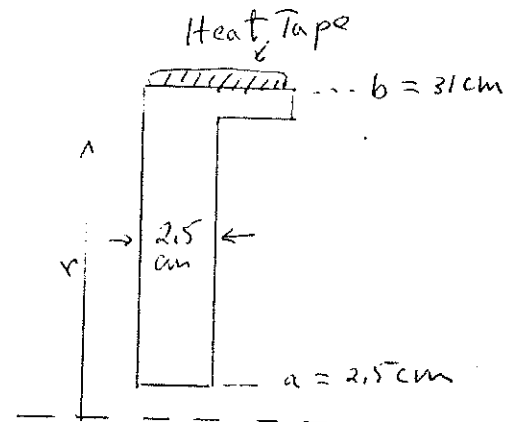 Heat Tape
b = 31 cm
2.5
cm
r
a = 2.5 cm